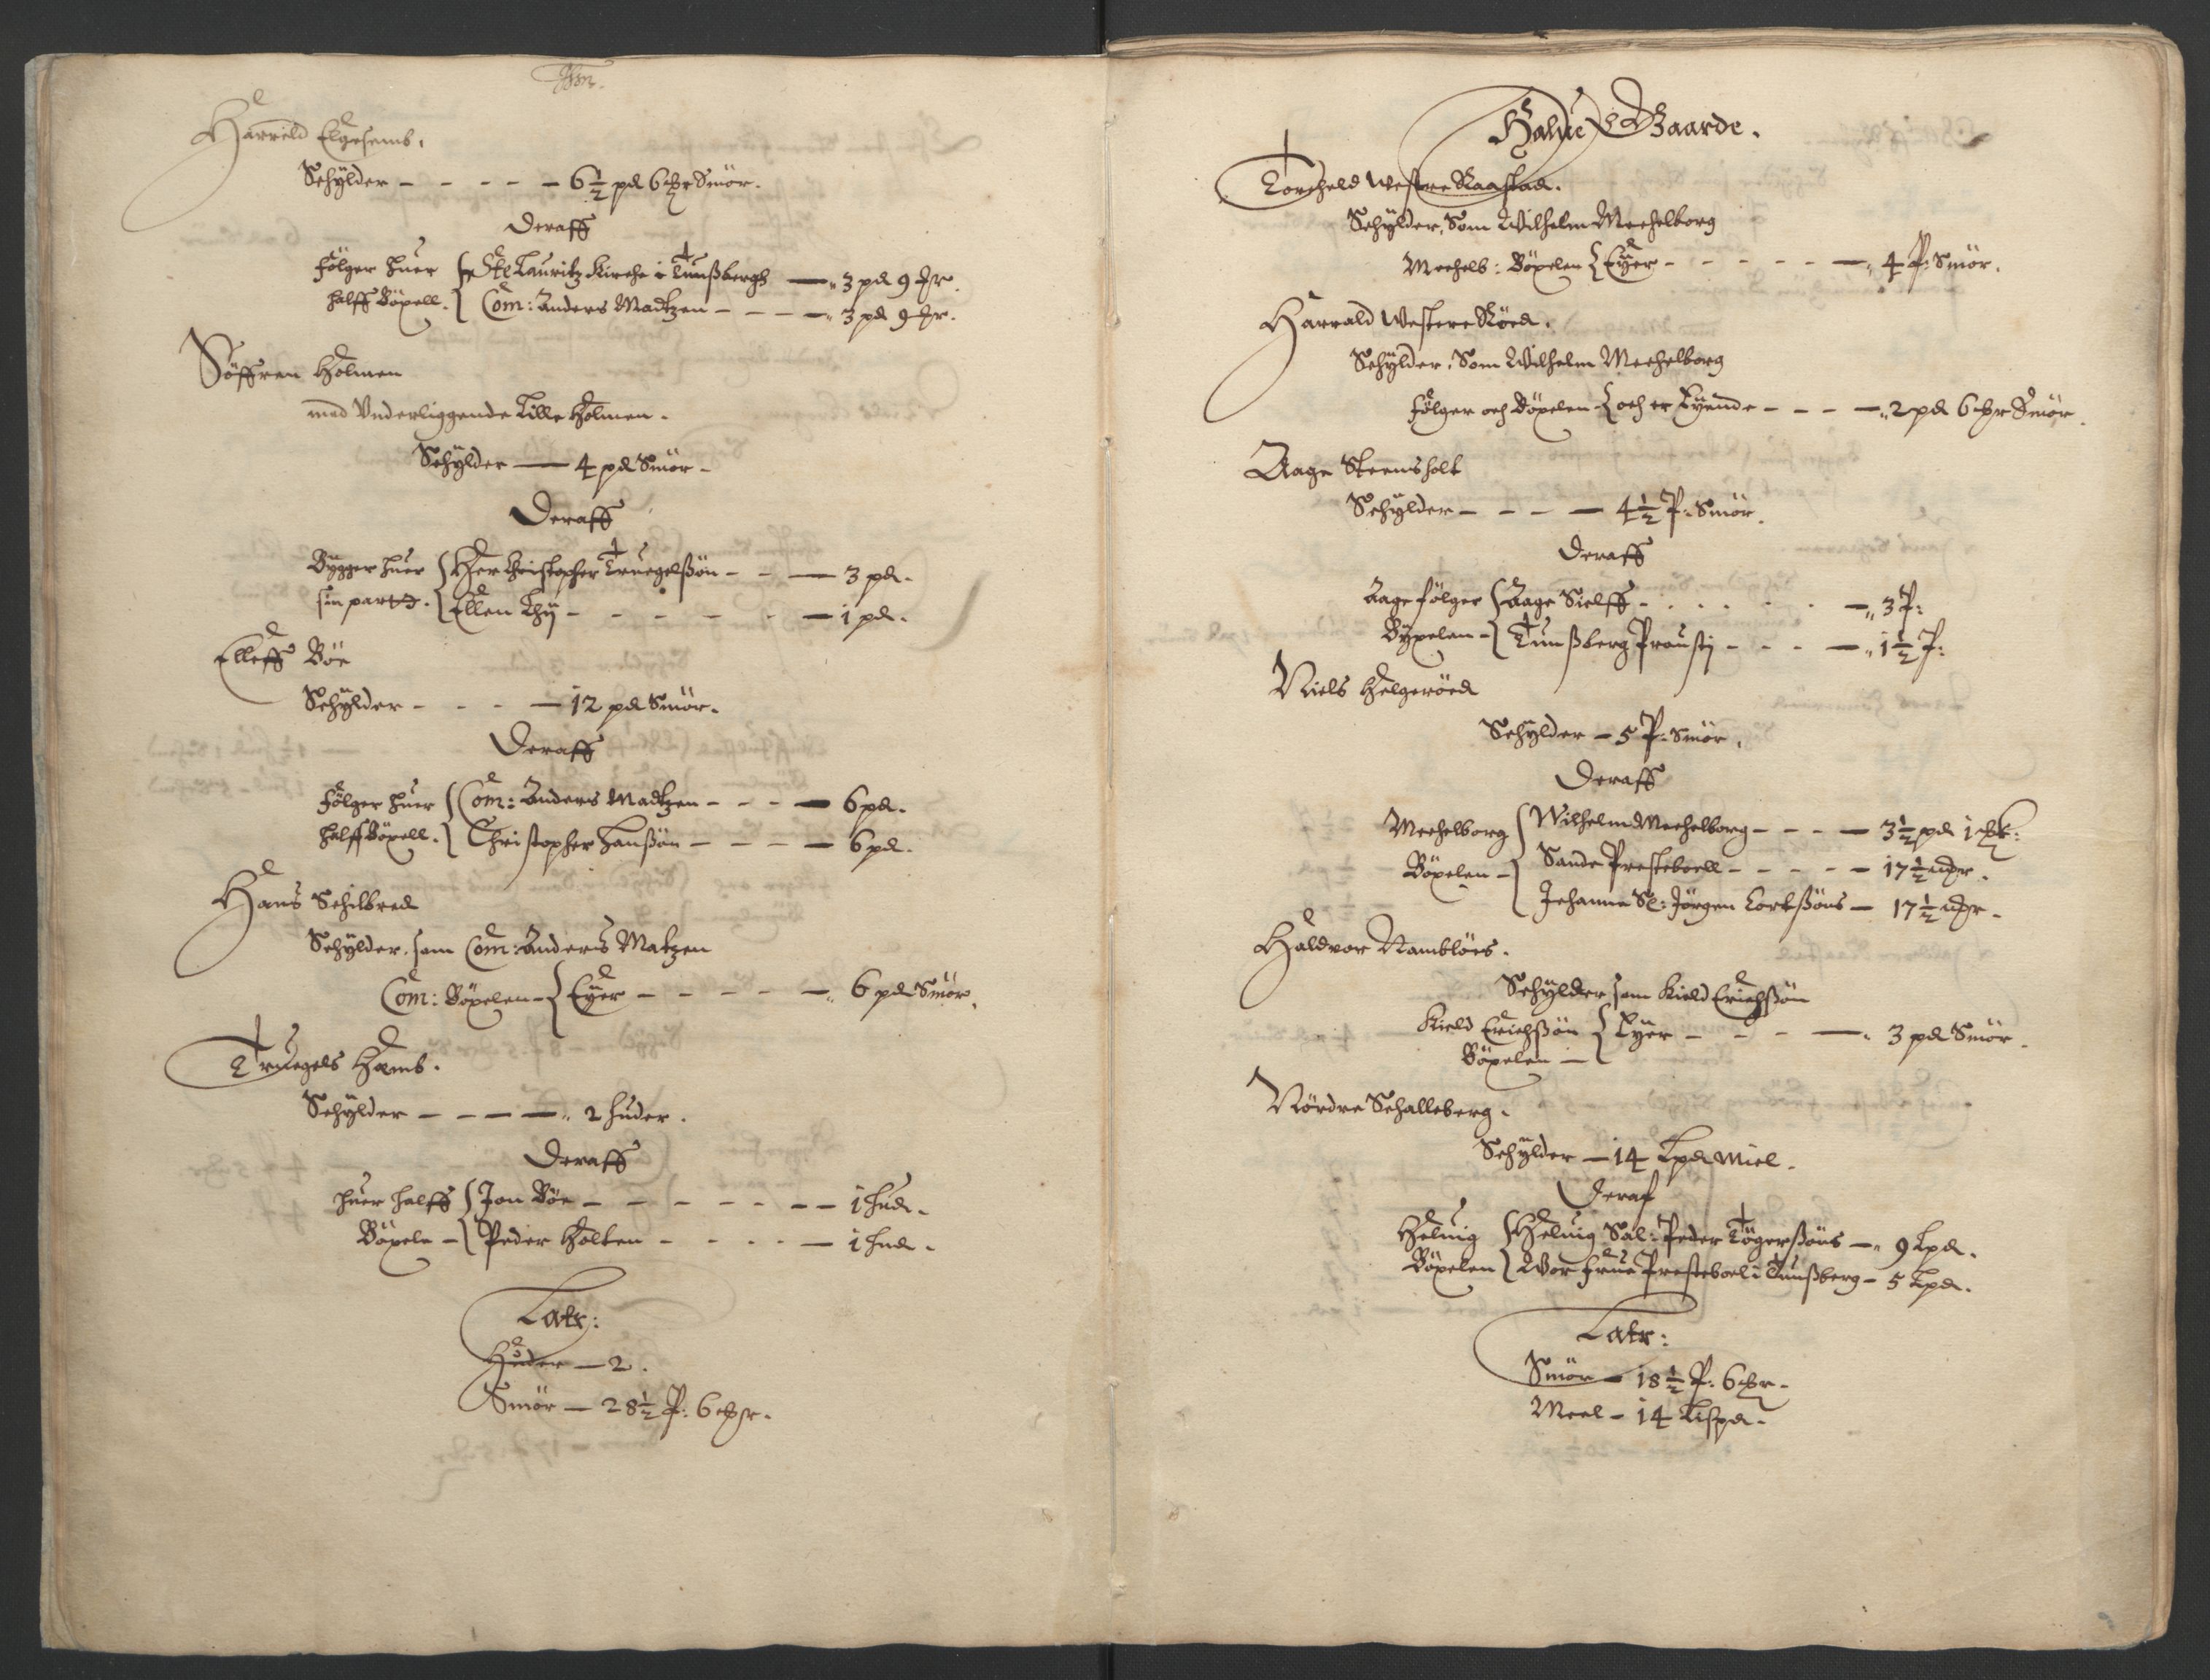 Harreld Elgesemb.
Schÿlder - - - - - 6½ pd 6 mr Smör.
Deraff
Fölger huer { Ste Lauritz Kirche i Tunßbergh — 3 pd 9 mr.
halff Böxell. { Com: Anders Madtzen - - - — 3 pd 9 mr.
Söffren Holmen
med Vnderliggende Lille Holmen.
Schÿlder — 4 pd Smör.
Deraff
Bygger huer { Her Christopher Truegelßön - - — 3 pd.
sin part. { Ellen Thÿ - - - - - - — 1 pd.
Elleff Böe
Schÿlder - - - — 12 pd Smör.
Deraff
Fölger huer { Com: Anders Madtzen - - - — 6 pd.
halff Böxell. { Christopher Hanßön - - - — 6 pd.
Hans Schilbred
Schÿlder. som Com: Anders Matzen
Com: Böxelen - { Eÿer - - - - - — 6 pd Smör.
Truegels Hæmb.
Schÿlder - - - — 2 huder.
Deraff
huer halff { Jon Böe - - - - - - — 1 hud.
Böxele - { Peder Holten - - - - — 1 hud.
Latr:
Huder — 2.
Smör — 28½ P: 6 mr.
Halfue Gaarde.
Torcheld Westre Raastad.
Schÿlder, Som Wilhelm Mechelborg
Mechelb: Böxelen { Eÿer - - - - - — 4 P: Smör.
Harrald Westere Röed.
Schÿlder, Som Wilhelm Mechelborg
fölger och Böxelen { och er Eyende - - - — 2 pd 6 mr Smör.
Aage Steensholt
Schÿlder - - - — 4½ P: Smör.
Deraff
Aage fölger { Aage Sielff - - - - - — 3 P:
Böxelen - { Tunßberg Prousti - - - — 1½ P:
Niels Helgeröed
Schÿlder — 5 P: Smör.
Deraff
Mechelborg { Wilhelm Mechelborg - - - — 3½ pd 1 mk:
Böxelen - { Sande Presteboell - - - - — 17½ mr.
Jehanne Sl: Jörgen Lortßöns — 17½ mr.
Haldvor Namblöes.
Schÿlder som Kield Erichßön
Kield Erichßön { Eyer - - - — 3 pd Smör.
Böxelen —
Nördre Schalleberg.
Schÿlder — 14 Lpd Miel.
Deraf
Heluig { Heluig Sal: Peder Tögerßöns — 9 Lpd.
Böxelen { Wor frue Presteboel i Tunßberg - 5 Lpd.
Latr:
Smör — 18½ P: 6 mr.
Meel — 14 Lispd.